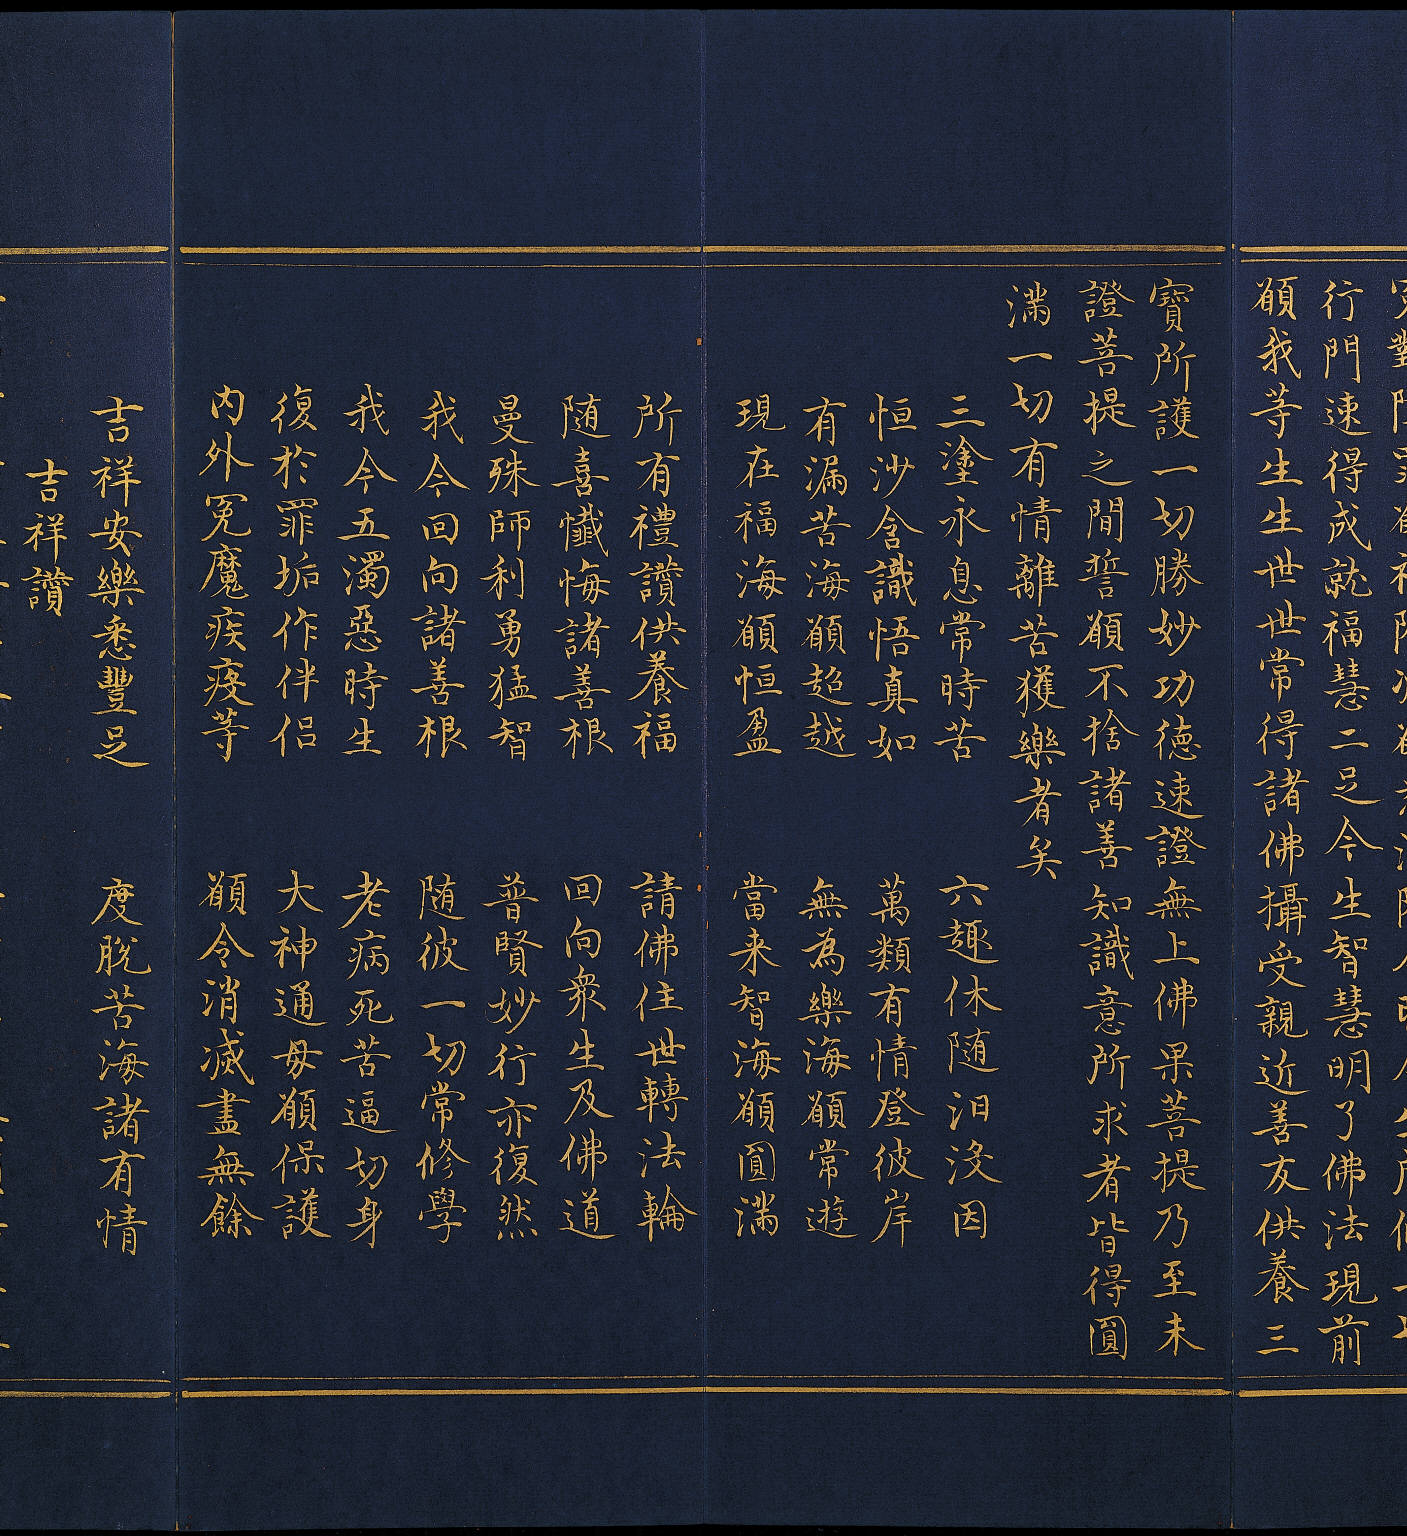 行門速得成就福慧二足今生智慧明了佛法現前
願我等生生世世常得諸佛攝受親近善友供養三
寶所護一切勝妙功德速證無上佛果菩提乃至未
證菩提之間誓願不捨諸善知識意所求者皆得圓
滿一切有情離苦獲樂者矣
三塗永息常時苦 六趣休隨汩沒因
恒沙含識悟真如 萬類有情登彼岸
有漏苦海願超越 無為樂海願常遊
現在福海願恒盈 當来智海願圓滿
所有禮讚供養福 請佛住世轉法輪
随喜懺悔諸善根 回向衆生及佛道
曼殊師利勇猛智 普賢妙行亦復然
我今回向諸善根 随彼一切常修學
我今五濁惡時生 老病死苦逼切身
復於罪垢作伴侣 大神通母願保護
内外冤魔疾疫等 願令消滅盡無餘
吉祥安樂悉豐足 度脫苦海諸有情
吉祥讚